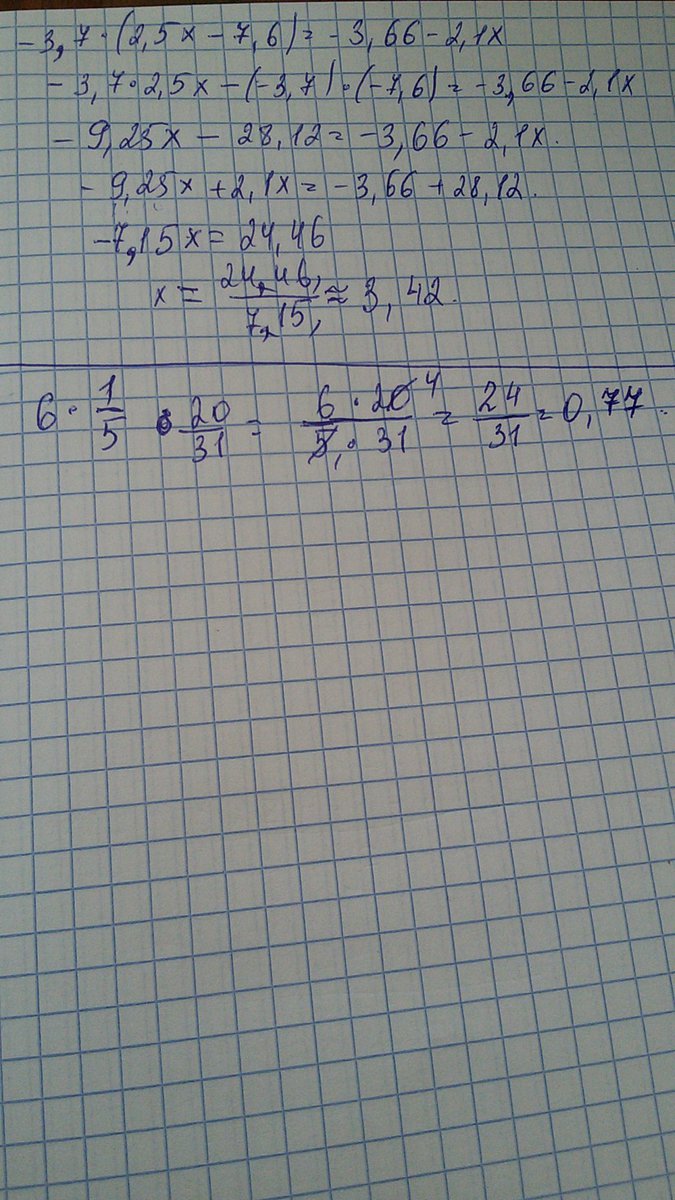 -3,7·(2,5x-7,6)=-3,66-2,1x
-3,7·2,5x-(-3,7)·(-7,6)=-3,66-2,1x
-9,25x-28,12=-3,66-2,1x.
-9,25x+2,1x=-3,66+28,12.
-7,15x=24,46
x=24,46/7,15≈3,42.
6·1/5·20/31=6·20 4/5,·31=24/31=0,77.